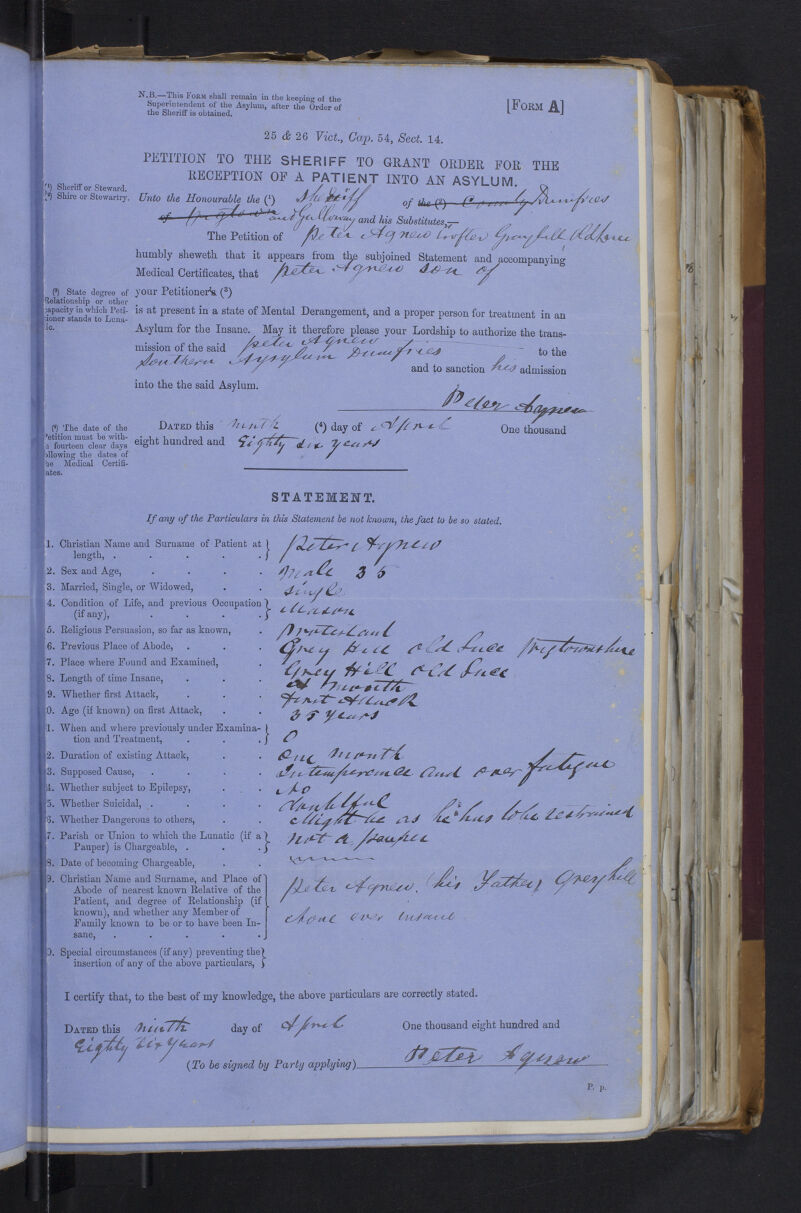 N.B.—This Form shall remain in the keeping of the
Superintendent of the Asylum, after the Order of
the Sheriff is obtained.
[Form A]
25 & 26 Vict., Cap. 54, Sect. 14.
PETITION TO THE SHERIFF TO GRANT ORDER FOR THE
RECEPTION OF A PATIENT INTO AN ASYLUM.
(1) Sheriff or Steward.
(2) Shire or Stewartry.
Unto the Honourable the (1) Sheriff of the (2) County Dumfries
and Galloway and his Substitutes,—
The Petition of Peter Agnew Crofter Greyhill
humbly sheweth that it appears from the subjoined Statement and accompanying
Medical Certificates, that Peter Agnew son of
(3) State degree of
Relationship or other
capacity in which Peti-
tioner stands to Luna-
tic.
your Petitioner's (3)
is at present in a state of Mental Derangement, and a proper person for treatment in an
Asylum for the Insane. May it therefore please your Lordship to authorize the trans-
mission of the said Peter Agnew to the
Southern Aysylum Dumfries and to sanction his admission
into the the said Asylum.
Peter Agnew
(4) The date of the
Petition must be with-
in fourteen clear days
following the dates of
the Medical Certifi-
cates.
Dated this ninth (4) day of April One thousand
eight hundred and Eighty six years
STATEMENT.
If any of the Particulars in this Statement be not known, the fact to be so stated.
1. Christian Name and Surname of Patient at length, . Peter Agnew
2. Sex and Age, Male 35
3. Married, Single, or Widowed, Single
4. Condition of Life, and previous Occupation (if any), Mason
5. Religious Persuasion, so far as known, Protestant
6. Previous Place of Abode, Grey Hill Old Luce Wigtownshire
7. Place where Found and Examined, Grey Hill Old Luce
8. Length of time Insane, A month
9. Whether first Attack, First Attack
0. Age (if known) on first Attack, 35 years
1. When and where previously under Examina-
tion and Treatment, 0
2. Duration of existing Attack, One Month
3. Supposed Cause, Intemperance and over fatigue
4. Whether subject to Epilepsy, No
5. Whether Suicidal, doubtful
6. Whether Dangerous to others, Might be as he has to be restrained
7. Parish or Union to which the Lunatic (if a
Pauper) is Chargeable, not a pauper
8. Date of becoming Chargeable,
9. Christian Name and Surname, and Place of
Abode of nearest known Relative of the
Patient, and degree of Relationship (if
known), and whether any Member of
Family known to be or to have been In-
sane,
Peter Agnew. (his Father) Greyhill
None ever insane
0. Special circumstances (if any) preventing the
insertion of any of the above particulars,
I certify that, to the best of my knowledge, the above particulars are correctly stated.
Dated this ninth day of April One thousand eight hundred and
Eighty Six years
(To be signed by Party applying) Peter Agnew
P. p.